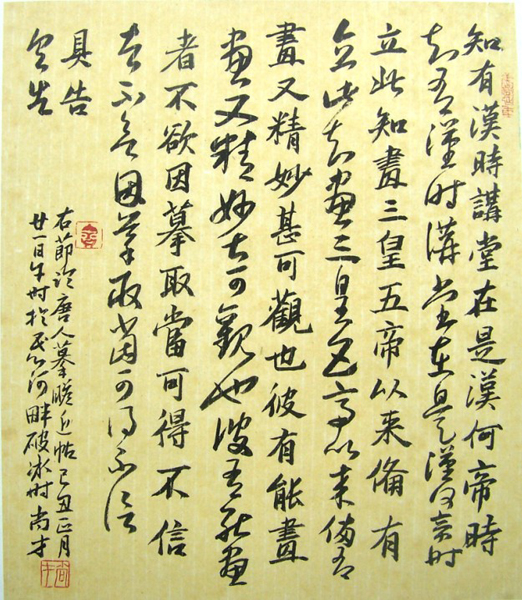 知有漢時講堂在是漢何帝時
知有漢時講堂在是漢何帝時
立此知畫三皇五帝以來備有
立此知畫三皇五帝以來備有
畫又精妙甚可觀也彼有能畫
畫又精妙甚可觀也彼有能畫
者不欲因摹取當可得不信
者不欲因摹取當可得不信
具告
具告
右節臨唐人摹瞻近帖己丑正月
廿一日午时於民心河畔破冰时尚才